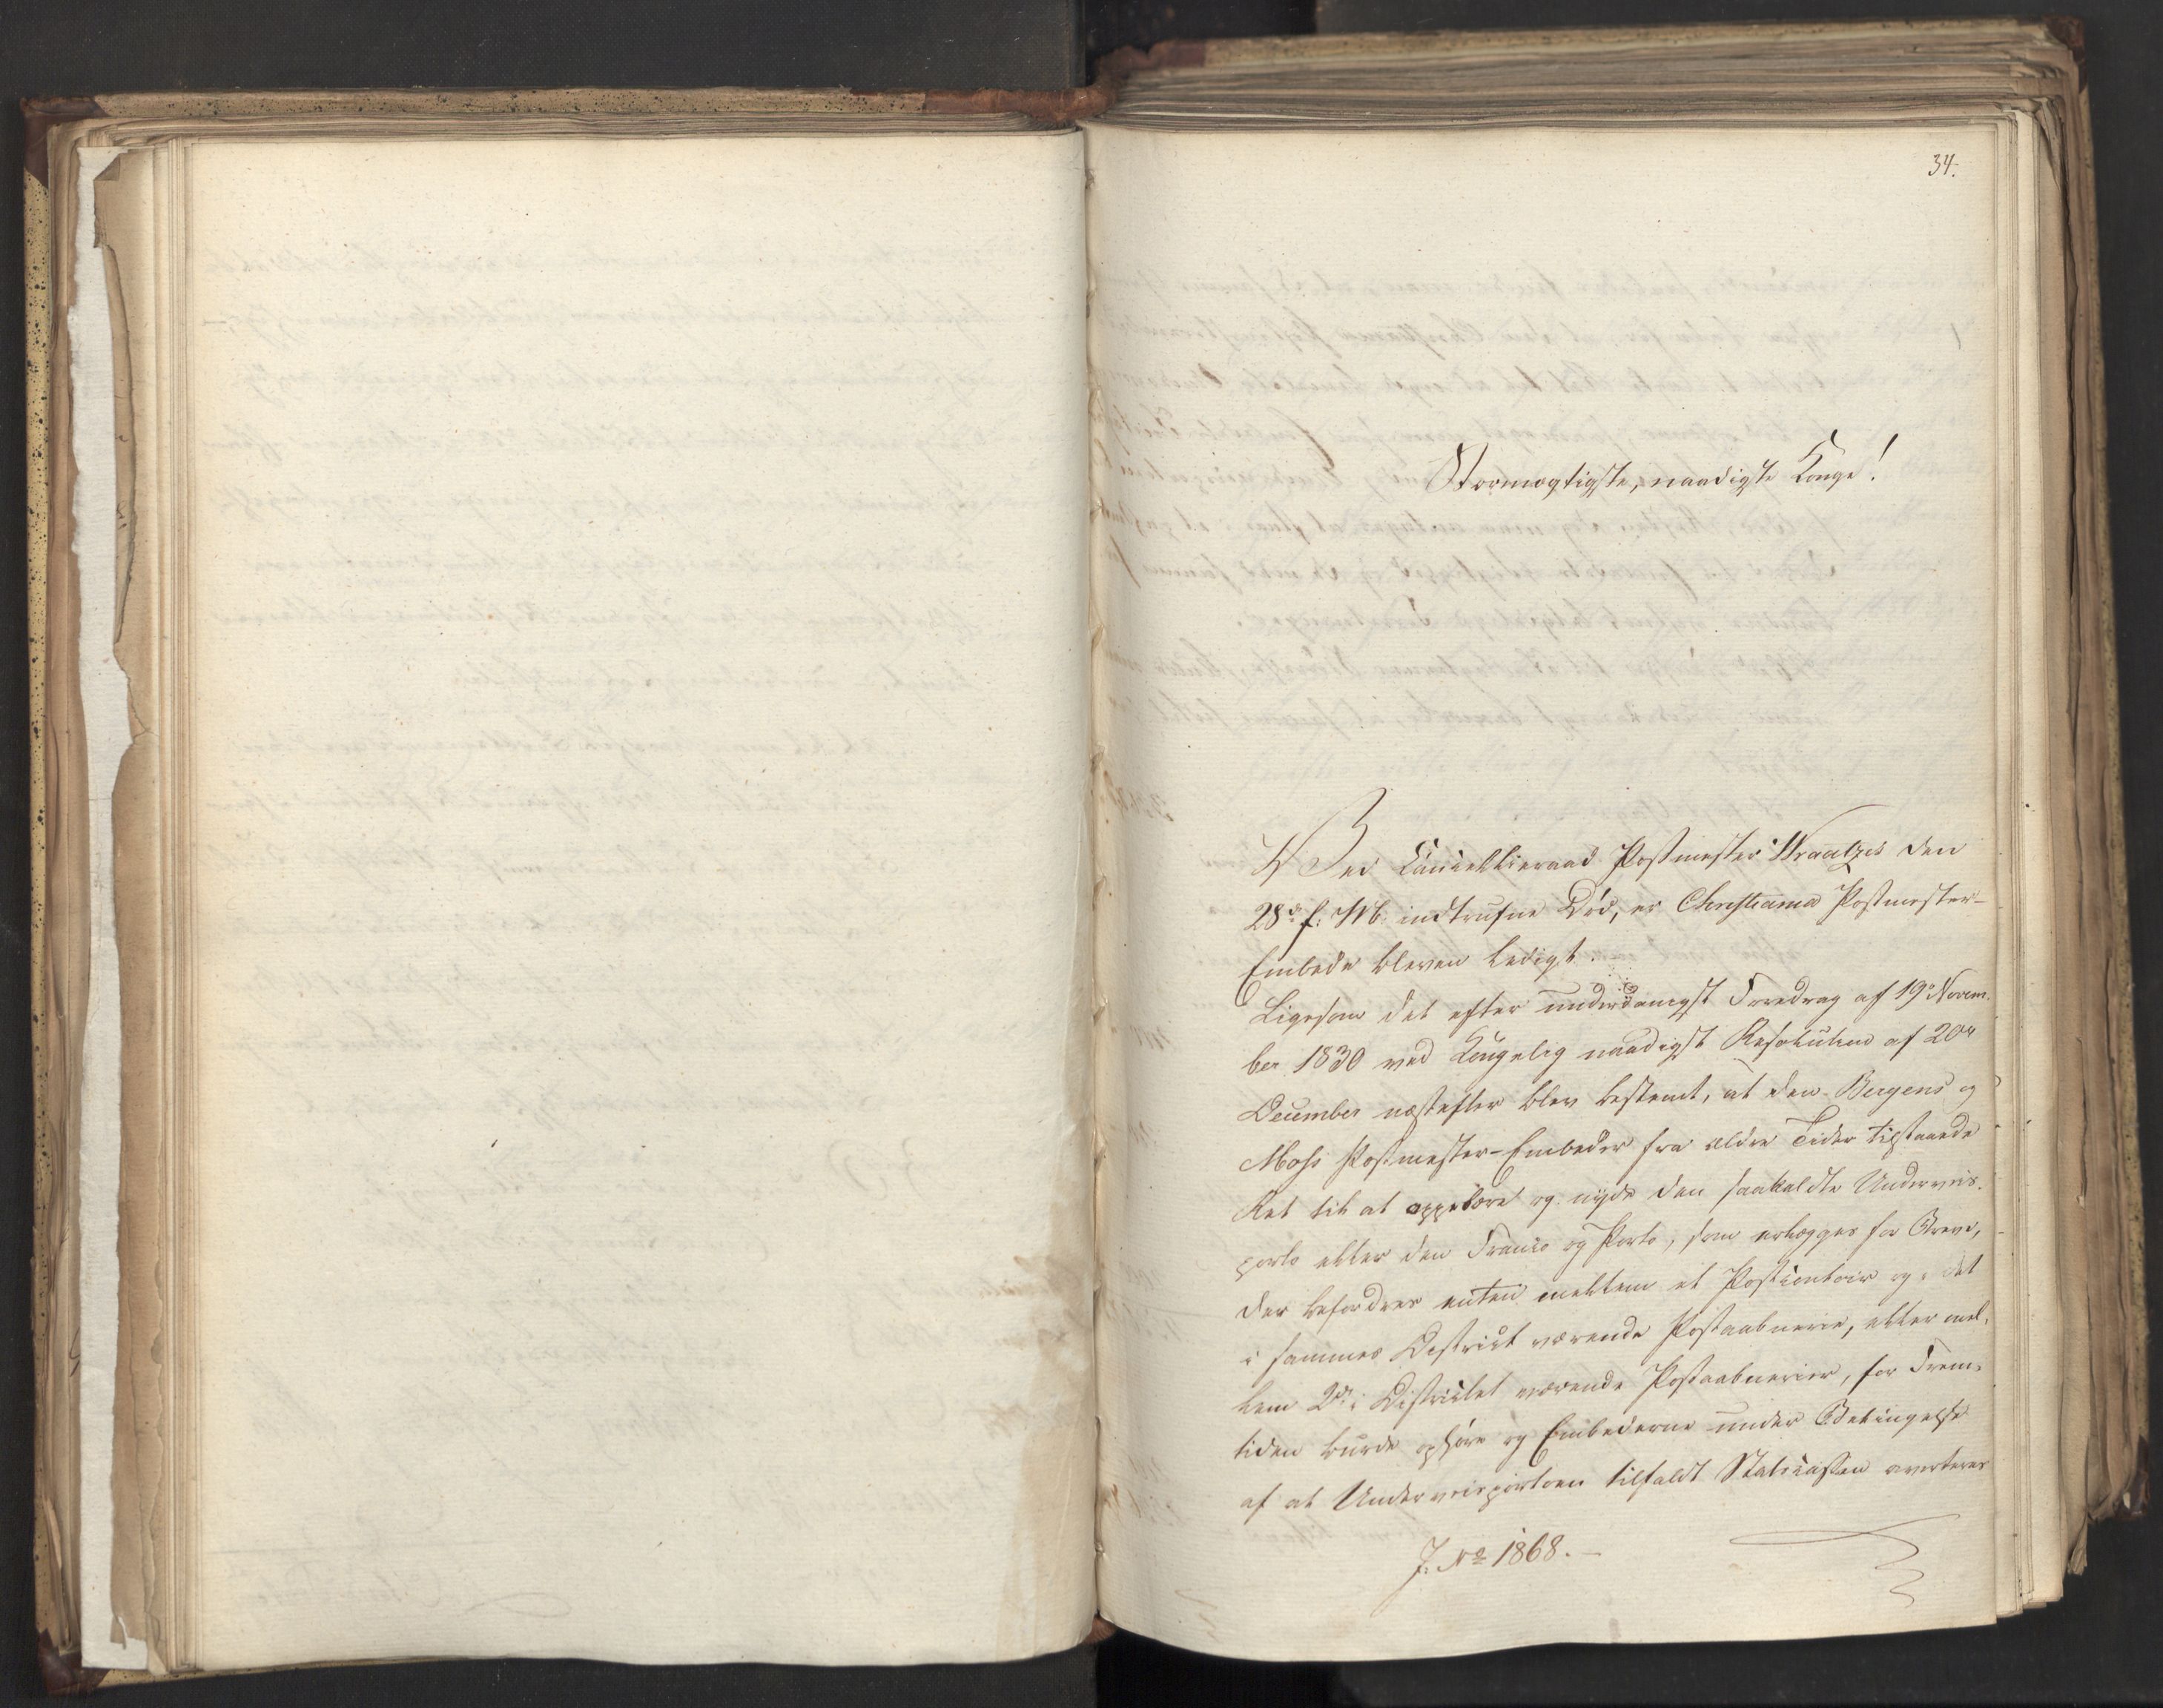 34.
Stormægtigste, naadigste Konge!
Ved Cancellieraad Postmester Wraatzes den
28de f: M: indtrufne Død, er Christiania Postmester-
Embede bleven ledigt. –
Ligesom det efter underdanigst Foredrag af 19de Novem-
ber 1830 ved Kongelig naadigst Resolution af 20de
December næstefter blev bestemt, at den Bergens og
Moss Postmester-Embeder fra ældre Tider tilstaaede
Ret til at oppebære og nyde den saakaldte Underveis-
porto eller den Franco og Porto, som erlægges for Breve,
der befordres enten mellem et Postcontoir og et
i sammes District værende Postaabnerie, eller mel-
lem 2de i Districtet værende Postaabnerier, for Frem-
tiden burde ophøre og Embederne under Betingelse
af at Underveisportoen tilfaldt Statscassen
J. No 1868. –